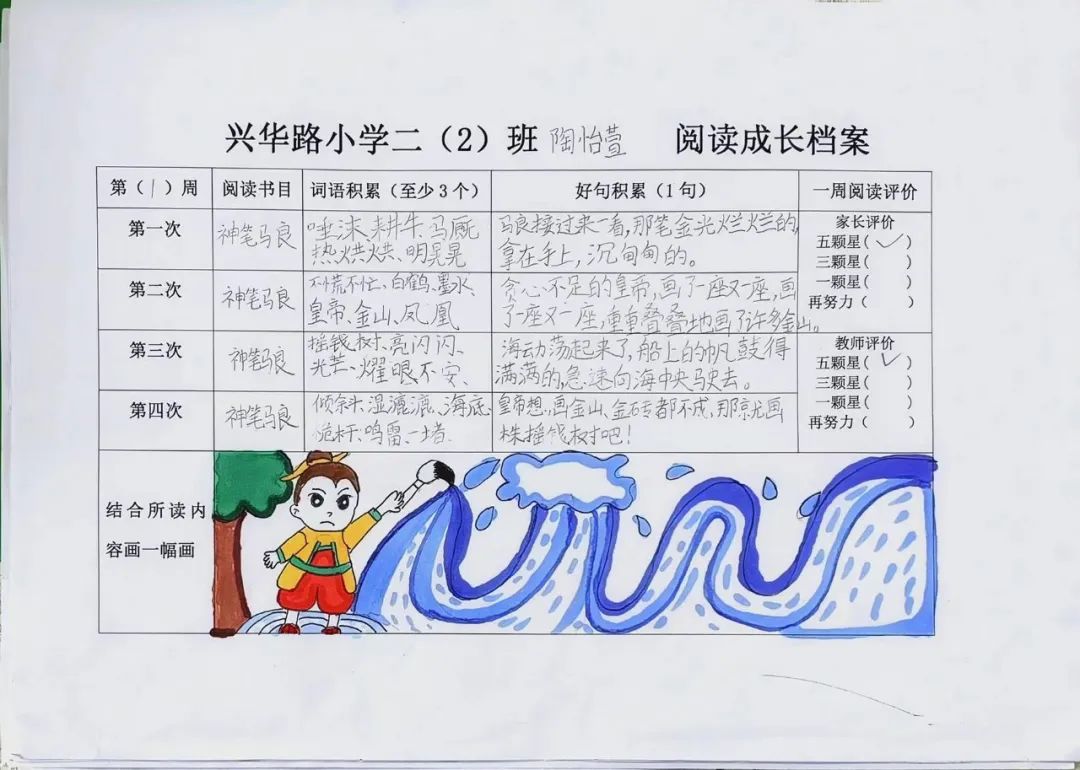 兴华路小学二（2）班 陶怡萱 阅读成长档案
第（1）周 阅读书目 词语积累（至少3个） 好句积累（1句） 一周阅读评价
第一次 神笔马良
唾沫、耕牛、马厩
热烘烘、明晃晃
马良接过来一看,那笔金光烂烂的,
拿在手上,沉甸甸的。
第二次 神笔马良
不慌不忙、白鹤、墨水、
皇帝、金山、凤凰
贪心不足的皇帝,画了一座又一座,画
了一座又一座,重重叠叠地画了许多金山。
第三次 神笔马良
摇钱树、亮闪闪、
光芒、耀眼、不安、
海动荡起来了,船上的帆鼓得
满满的,急速向海中央驶去。
第四次 神笔马良
倾斜、湿漉漉、海底、
桅杆、鸣雷、一堵、
皇帝想,画金山、金砖都不成,那就画
株摇钱树吧！
家长评价
五颗星(✓)
三颗星( )
一颗星( )
再努力( )
教师评价
五颗星(✓)
三颗星( )
一颗星( )
再努力( )
结合所读内
容画一幅画